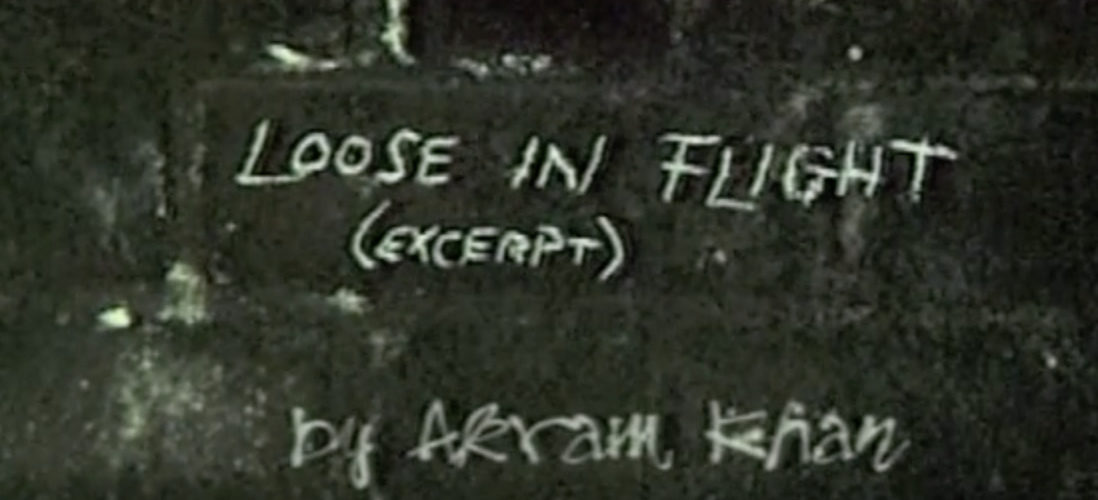 LOOSE IN FLIGHT
(EXCERPT)
by Akram Khan